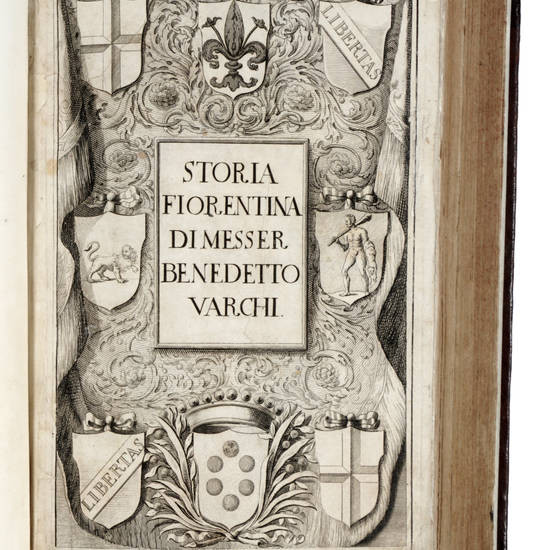 LIBERTAS
STORIA
FIORENTINA
DI MESSER
BENEDETTO
VARCHI.
LIBERTAS